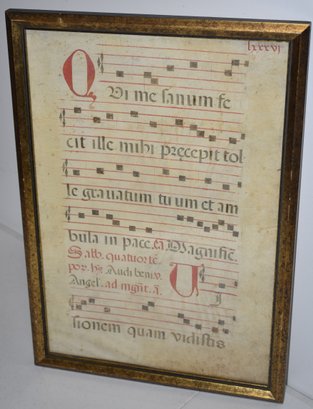 lxxxvj
QVi me sanum fe
cit ille mihi pręcepit tol
le grauatum tuum et am
bula in pace. Magnific̄.
Sabb. quatuor tē.
por. Audi beni
Angel. ad mgnt. a. V
sionem quam vidistis